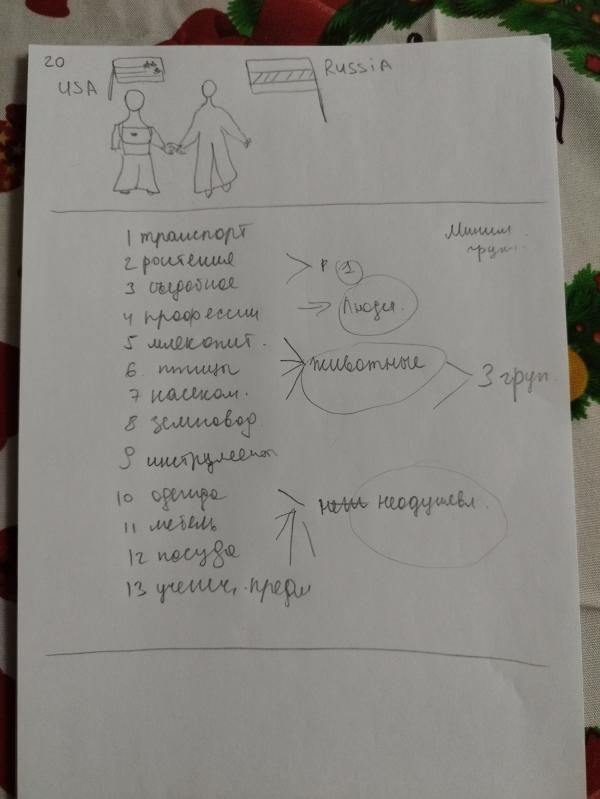 20
USA
RUSSiA
1 транспорт
2 ростение
3 съедобное
4 профессии
5 млекопит.
6. птицы
7 насеком.
8 земновод
9 инструмент
10 одежда
11 мебель
12 посуда
13 учени. предм
1
Люди.
животные
3 груп.
неодушевл.